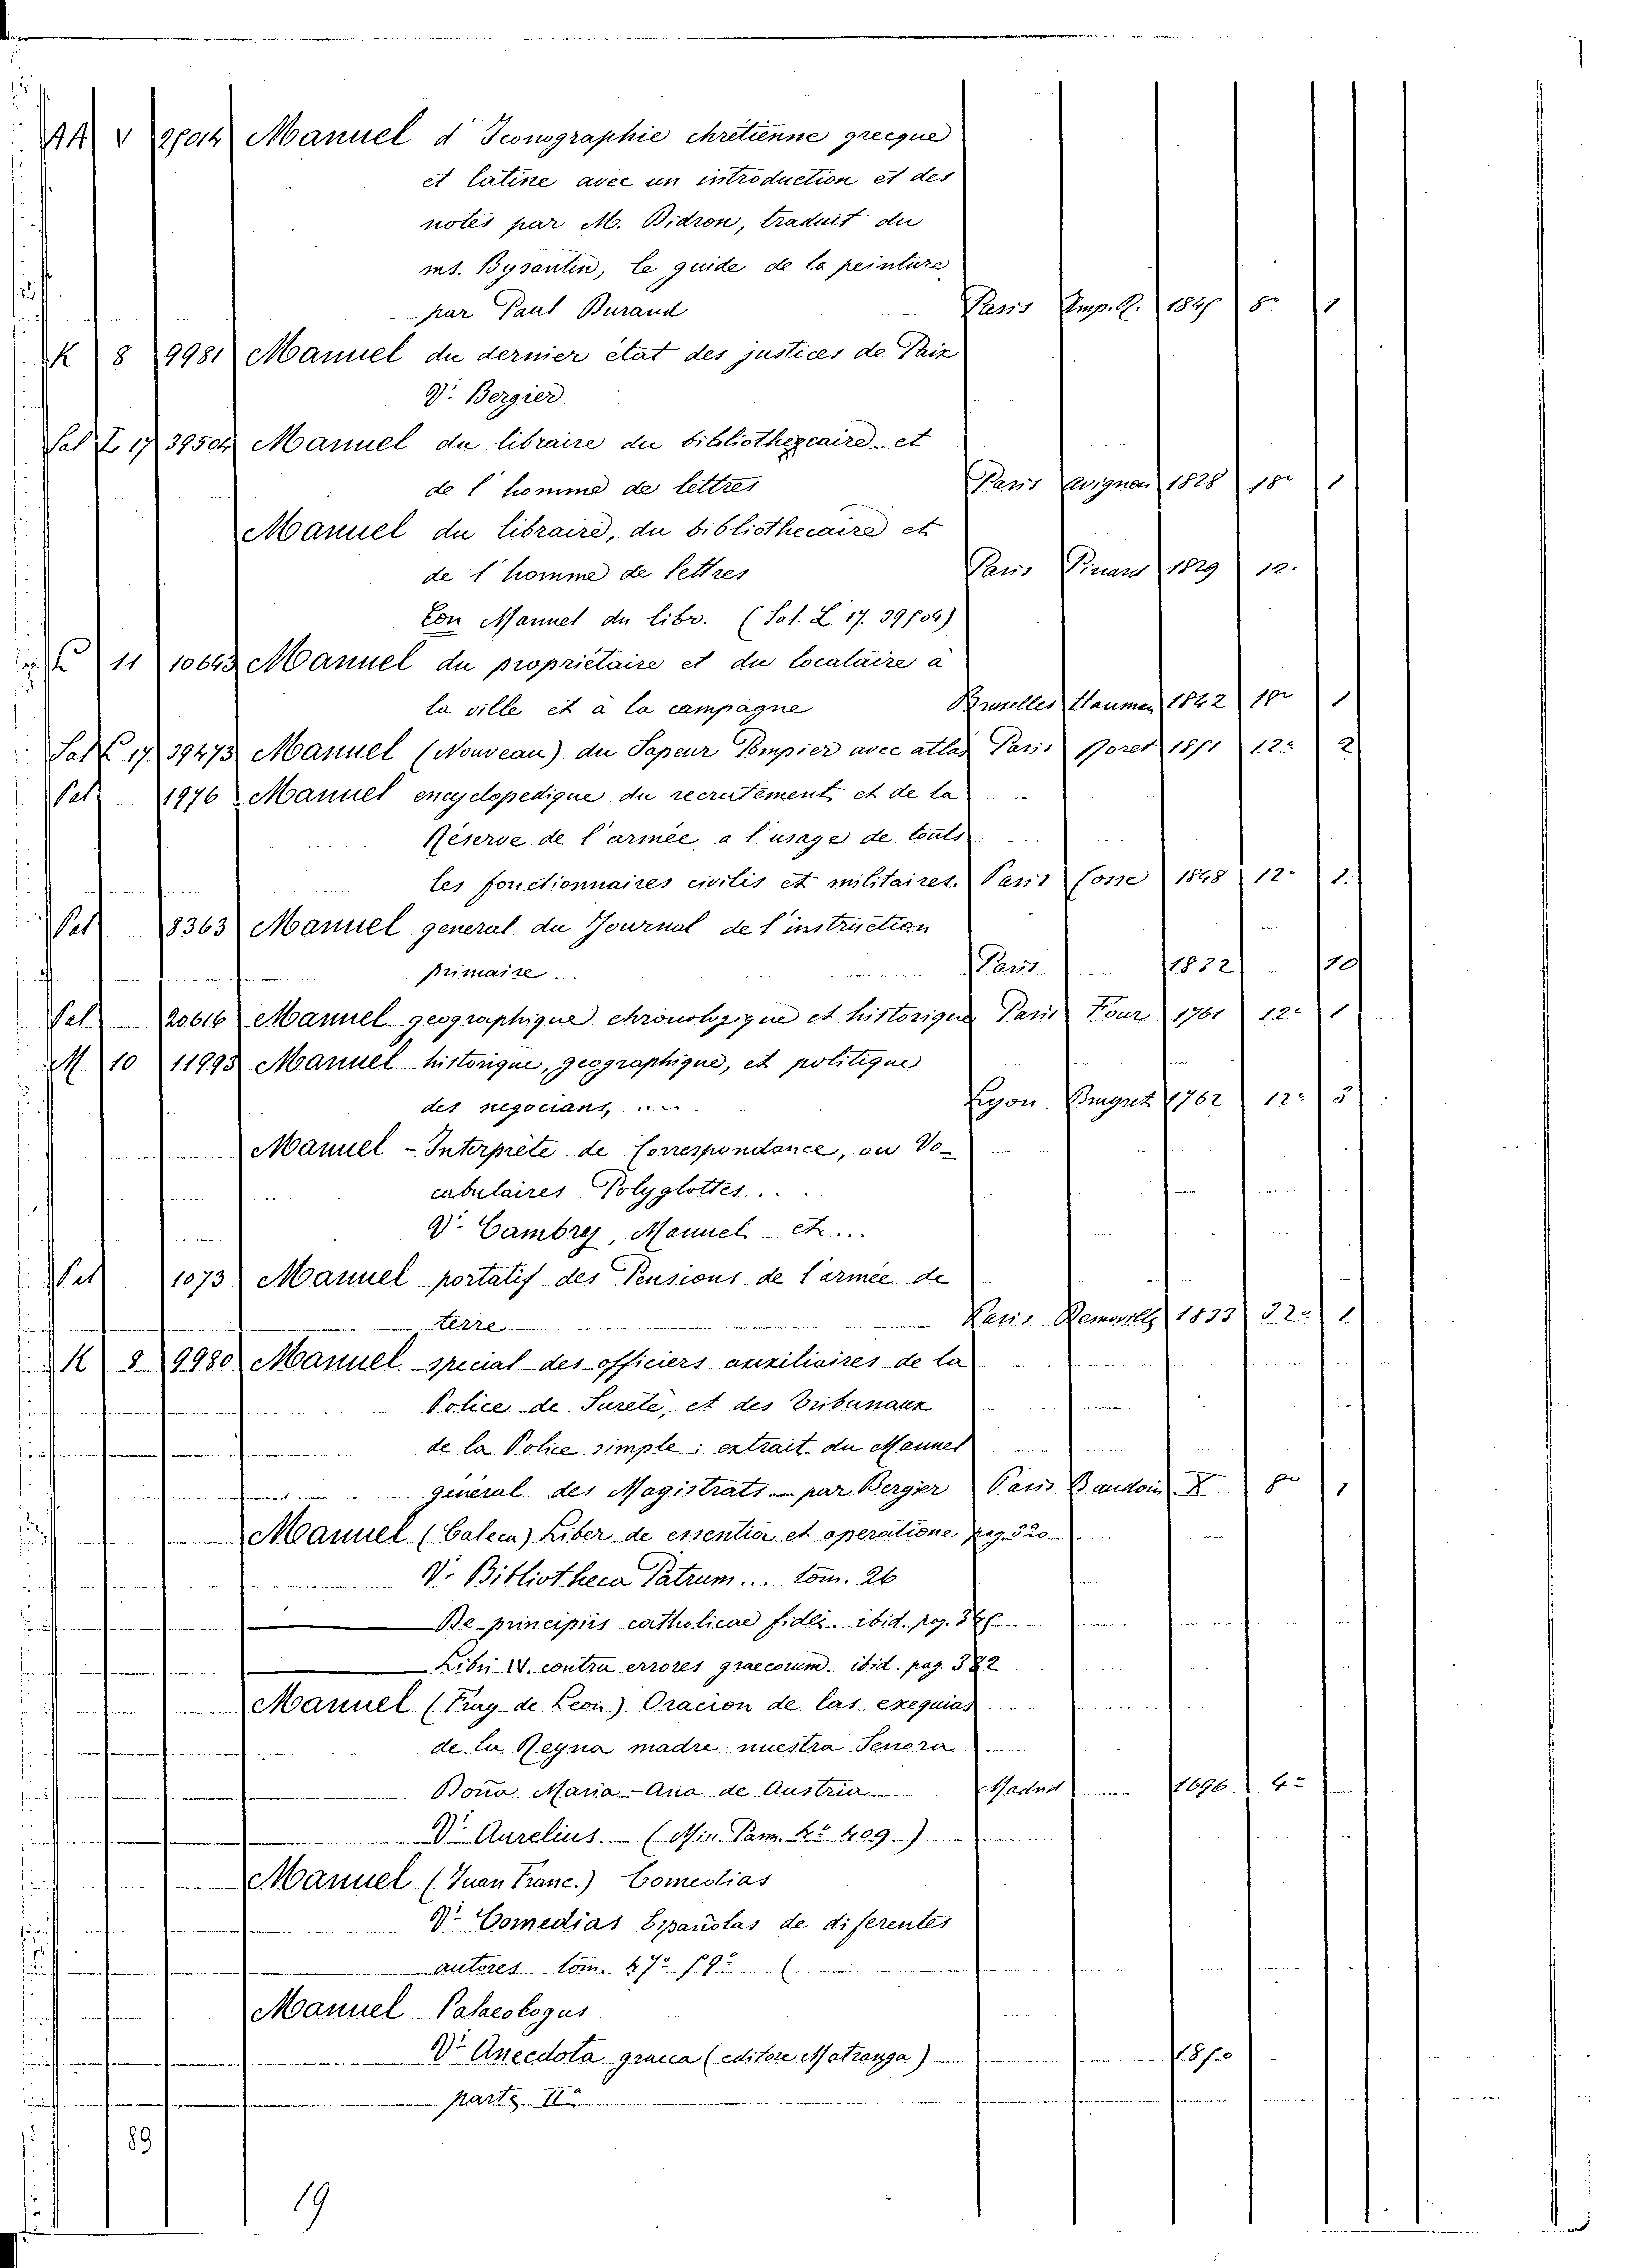 AA V Manuel d'Iconographie chrétienne grecque
et latine avec un introduction et des
notes par M. Bidron, traduit du
ms. Bysantin, le guide de la peinture
par Paul Burand Paris Imp. R. 1845 8º 1
K 8 9981 Manuel du dernier état des justices de Paix
Vº Bergier
Sal L. 17 39504 Manuel du libraire du bibliothezcaire et
de l'homme de lettres Paris Avignon 1828 18º 1
Manuel du libraire, du bibliothecaire et
de l'homme de lettres Paris Pinard 1829 12.
Con Manuel du libr. (Sal. L 17. 39504)
11 10643 Manuel du propriétaire et du locataire à
la ville et à la campagne Bruselles Hauman 1842 18º 1
Sal L 17 39273 Manuel (Nouveau) du Sapeur Pompier avec atlas Paris Roret 1851 12º 2
Sal 1976 Manuel encyclopedique du recrutement et de la
Réserve de l'armée a l'usage de touts
les fonctionnaires civilis et militaires. Paris Cosse 1848 12º 1.
Sal 8363 Manuel general du Journal de l'instruction
primaire Paris 1832 10
Sal 20616 Manuel geographique chronologique et historique Paris Four 1761 12º 1.
M 10 11993 Manuel historique, geographique, et politique
des negocians, .... Lyon Bruyset 1762 12º 5
Manuel - Interprète de Correspondance, ou Vo-
cabulaires Polyglottes....
Vº Cambrey, Manuel etc...
Sal 1073 Manuel portatif des Pensions de l'armée de
terre Paris 1833 32º 1
K 8 9980 Manuel special des officiers auxiliaires de la
Police de Sureté, et des Tribunaux
de la Police simple: extrait du Manuel
général des Magistrats par Bergier Paris Baudoin X 8º 1
Manuel (Caleca) Liber de essentier et operatione pag. 320
Vº Bibliotheca Patrum... tom. 26
Be principiis catholicae fidei. ibid. pag. 345
Libri IV. contra errores graecorum. ibid. pag. 382
Manuel (Fray de Leon) Oracion de las exequias
de la Reyna madre nuestra Senora
Bona Maria-Ana de Austria Madrid 1696 4º
Vº Aurelius. (Min. Pam. Nº 409.)
Manuel (Juan Franc.) Comedias
Vº Comedias Españolas de diferentes
autores tom. 47º 19º (
Manuel Palaeologus
Vº Anecdota graeca (editore Matranga) 1850
parte IIª
89
19